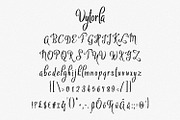 Vylorla
A B C D E F G H I J K L M
N O P Q R S T U V W X Y Z
a b c d e f g h i j k l m
n o p q r s t u v w x y z
0 1 2 3 4 5 6 7 8 9